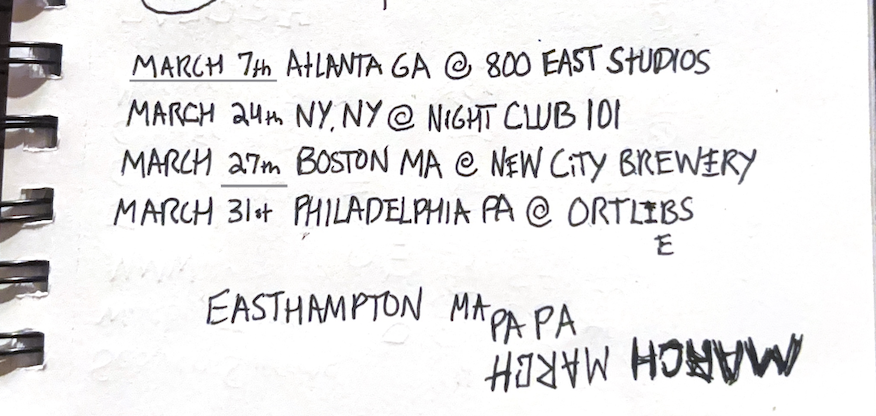 MARCH 7th ATLANTA GA @ 800 EAST STUDIOS
MARCH 24th NY, NY @ NIGHT CLUB 101
MARCH 27th BOSTON MA @ NEW CITY BREWERY
MARCH 31st PHILADELPHIA PA @ ORTLIBS
E
EASTHAMPTON MA
PA PA
MARCH MARCH